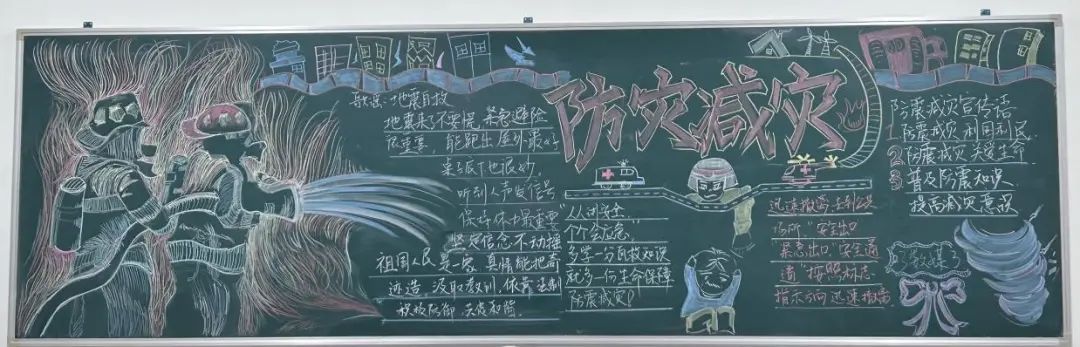 防灾减灾
歌谣:地震自救
地震来了不要慌 紧急避险
很重要 能跑出屋外最好
桌子底下也很妙
听到人声发信号
保存体力最重要
坚定信念不动摇
祖国人民是一家 真情能把奇
迹造 汲取教训,依靠法制
积极防御
人人讲安全
个个会应急
多学一分自救知识
就多一份生命保障
防震减灾
迅速撤离
场所"安全出口
紧急出口""安全通
道"按照标志
指示方向迅速撤离
防震减灾宣传语
1. 防震减灾 利国利民
2. 防震减灾 关爱生命
3. 普及防震知识
提高减灾意识